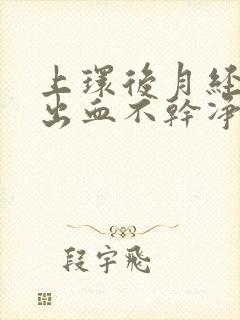 上環後月經
出血不幹凈
段宇飛